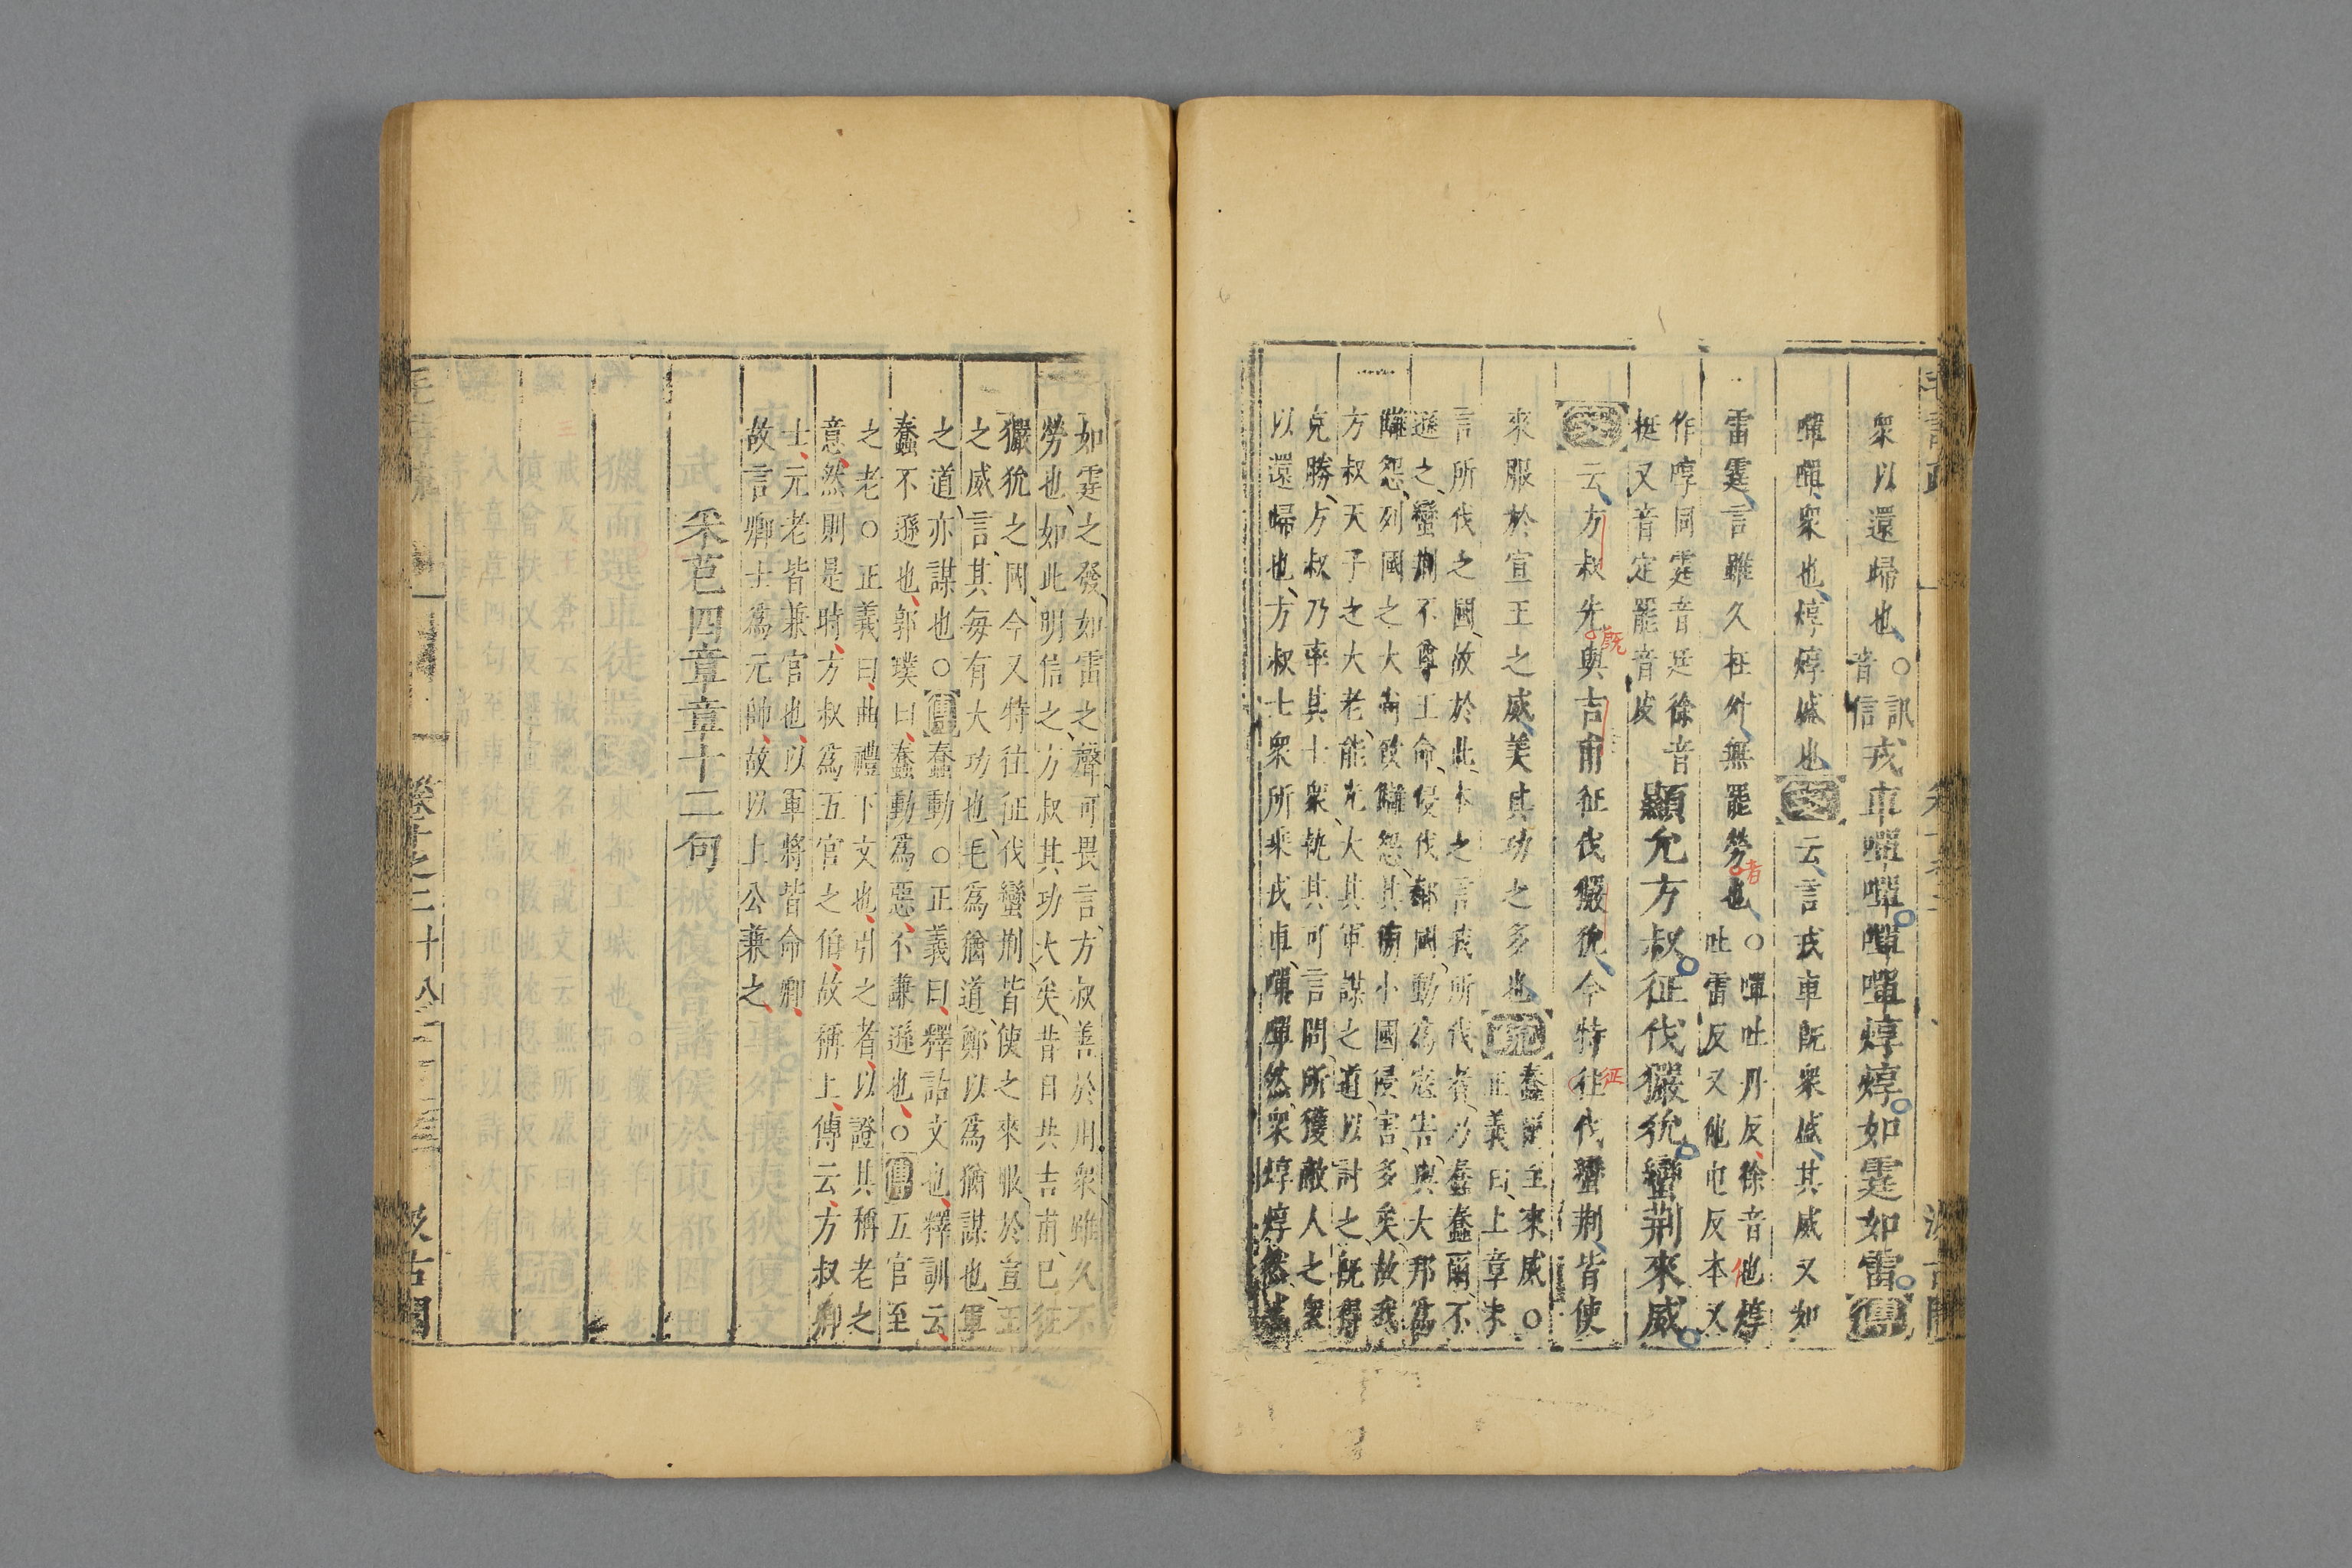 衆以還歸也○訊音信戎車嘽嘽嘽嘽焞焞如霆如雷傳
嘽嘽衆也焞焞盛也箋云言戎車既衆盛其威又如
雷霆言雖久在外無罷勞也○嘽吐丹反徐音他焞
吐雷反又他屯反本又
作啍同霆音廷徐音
挺又音定罷音皮
顯允方叔征伐玁狁蠻荆來威
箋云方叔先與吉甫征伐玁狁今特往伐蠻荆皆使
來服於宣王之威美其功之多也疏蠢爾至來威○
正義曰上章未
言所伐之國故於此本之言我所伐者乃蠢蠢爾不
遜之蠻荆不尊王命侵伐鄰國動爲寇害與大邦爲
讎怨列國之大尚致讎怨其傍小國侵害多矣故我
方叔天子之大老能光大其軍謀之道以討之既得
克勝方叔乃率其士衆執其可言問所獲敵人之衆
以還歸也方叔士衆所乘戎車嘽嘽然衆焞焞然盛
如霆之發如雷之聲可畏言方叔善於用衆雖久不
勞也如此明信之方叔其功大矣昔日共吉甫已征
玁狁之國今又特往征伐蠻荆皆使之來服於宣王
之威言其每有大功也毛爲猶道鄭以爲猶謀也軍
之道亦謀也○傳蠢動○正義曰釋詁文也釋訓云
蠢不遜也郭璞曰蠢動爲惡不謙遜也○傳五官至
之老○正義曰曲禮下文也引之者以證其稱老之
意然則是時方叔爲五官之伯故稱上傳云方叔卿
士元老皆兼官也以軍將皆命卿
故言卿士爲元帥故以上公兼之
采芑四章章十二句
既
者
征
卷十之二
十八
汲古閣